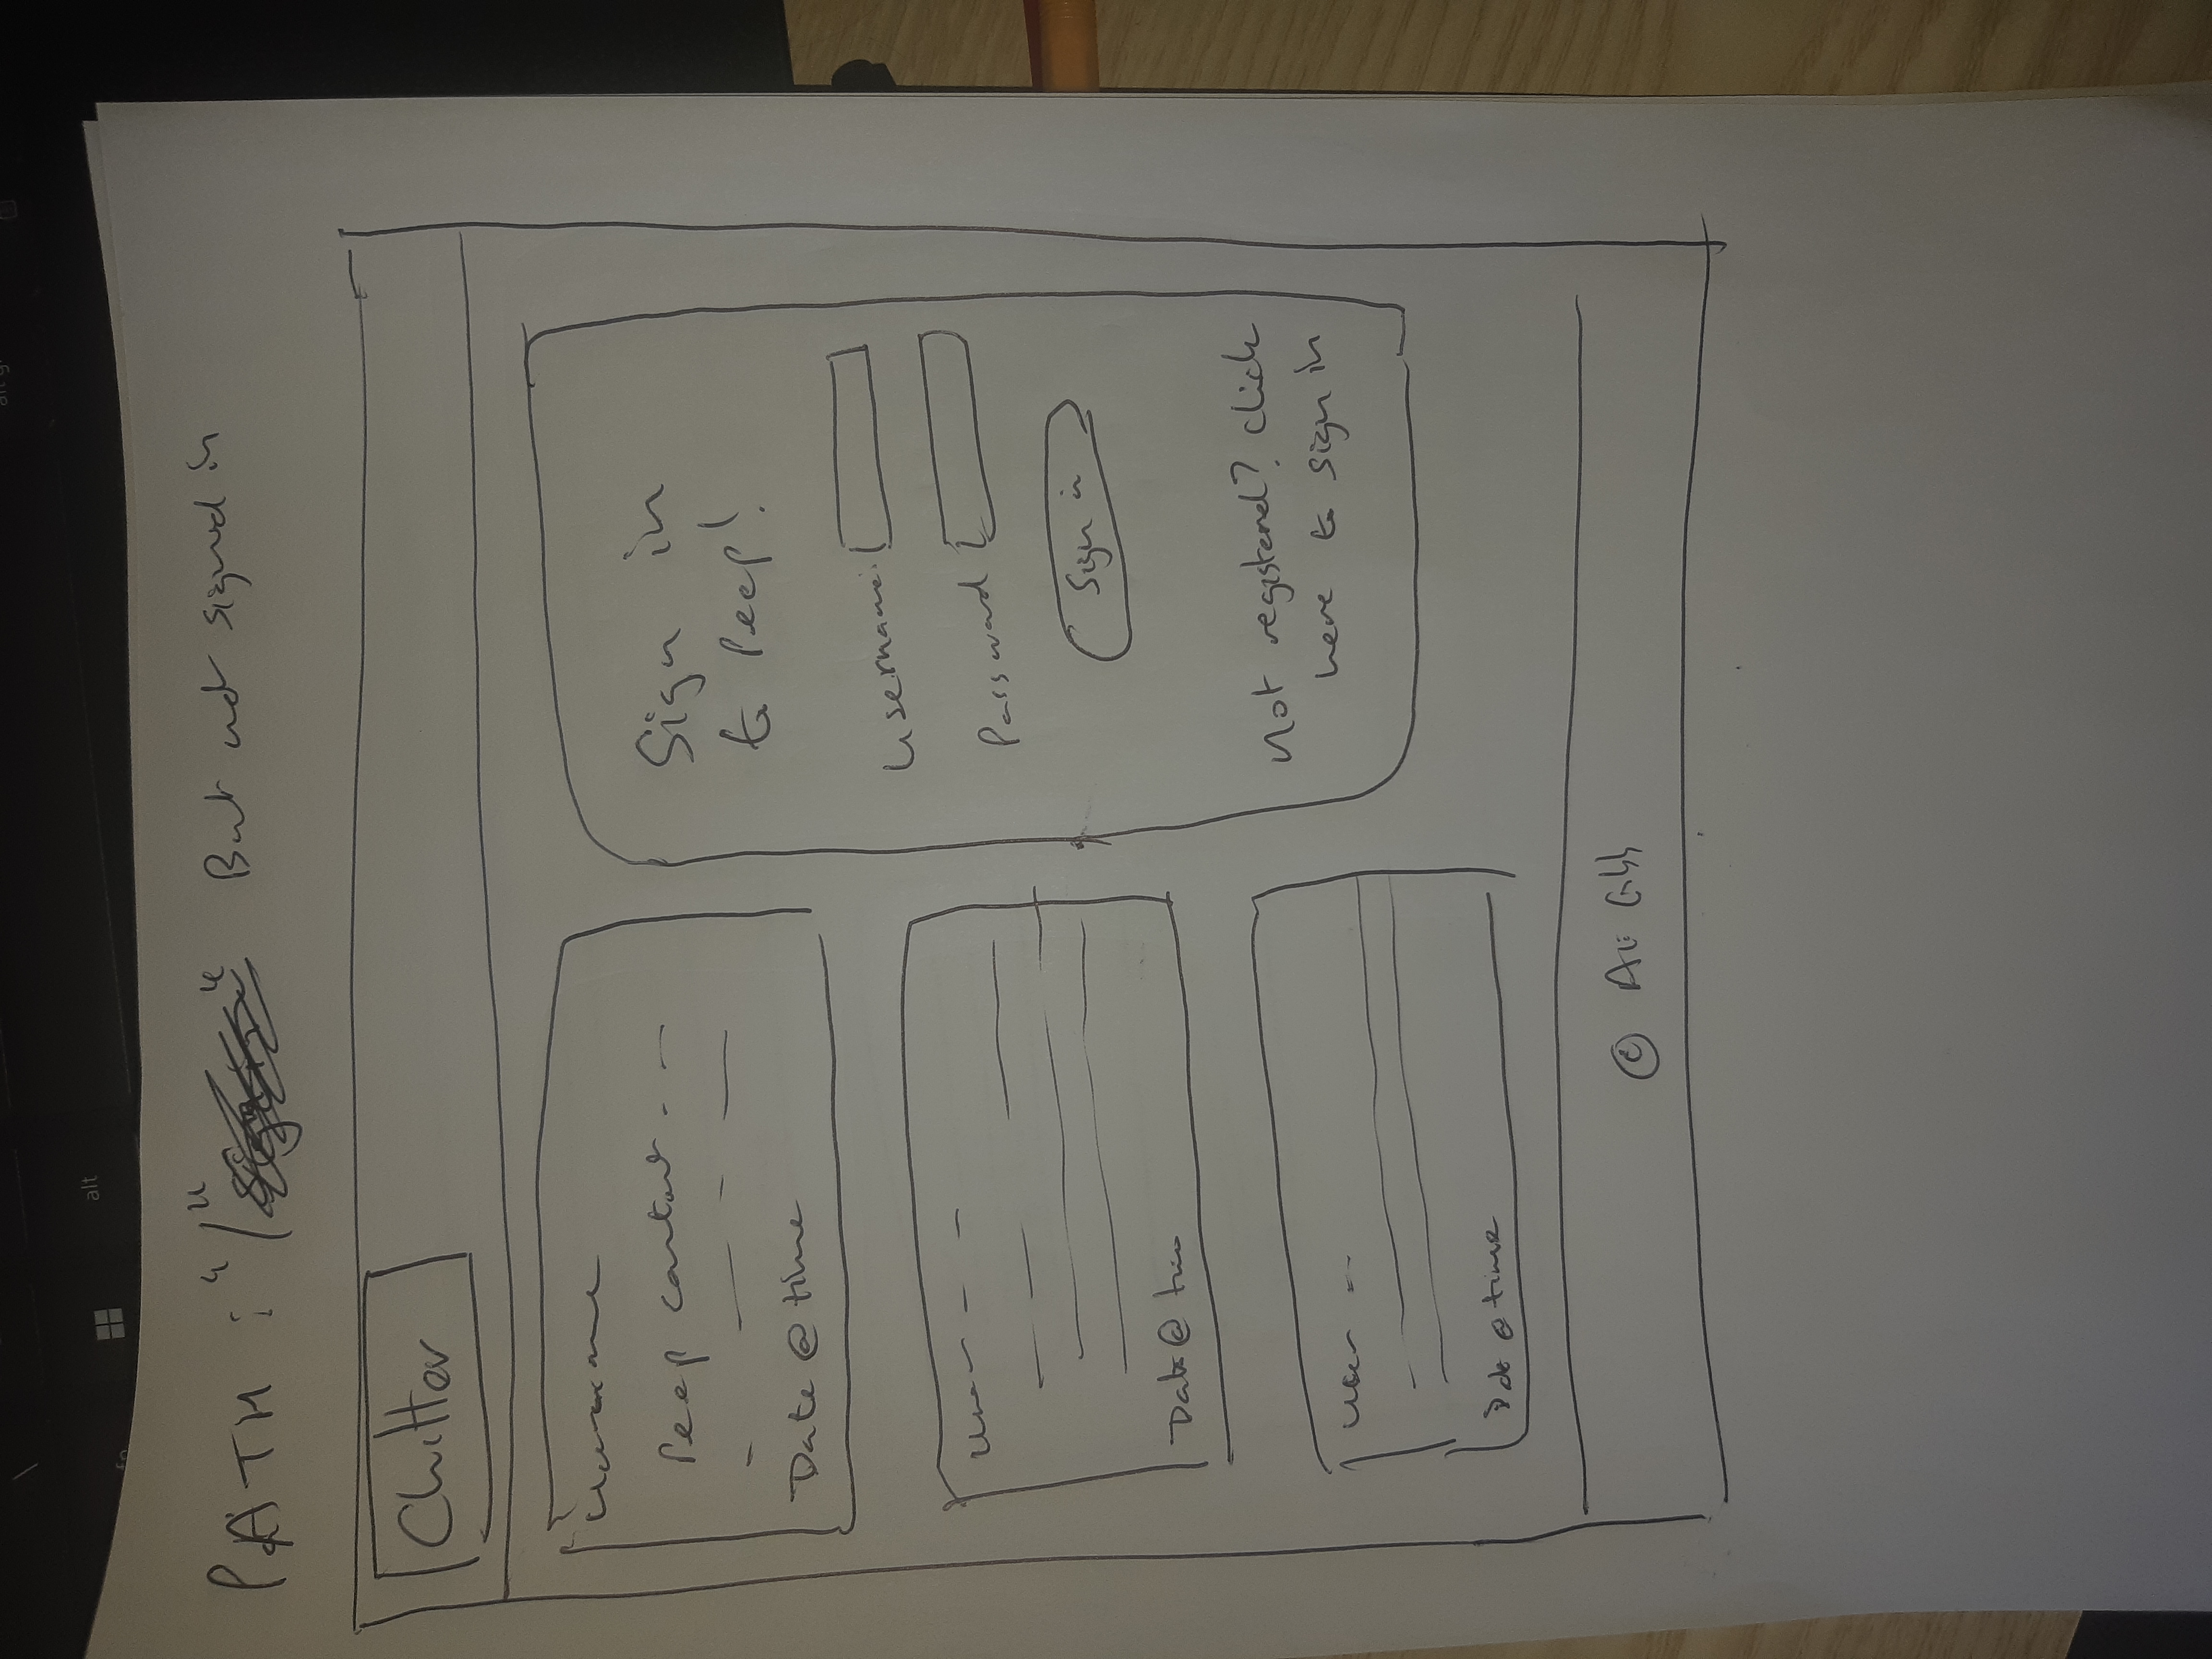 alt
fn
PATH : "/" But not signed in
Chitter
Username
Peep content - —
Date @ time
User — —
Date @
User --
@ time
Sign in
to Peep!
Username:
Password
Sign in
Not registered? Click
here to sign in
©